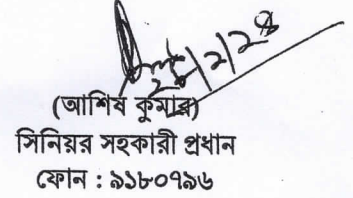 (আশিষ কুমার)
সিনিয়র সহকারী প্রধান
ফোন : ৯১৮০৭৯৬